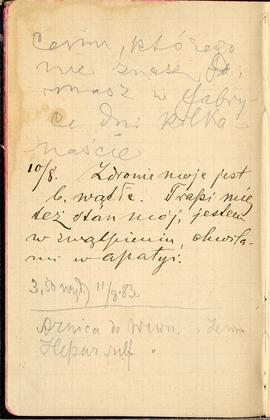 cenin, którego
nie znasz do,
masz w fabry
ce dni kilka
naście
10/8. Zdrowie moje jest
b. wątłe. Trapi mię
też stan mój, jestem
w zwątpieniu, chwila
mi w apatyi.
3,50 wyd) 11/9.83.
Arnica do wewn. i zewn
Hepar sulf